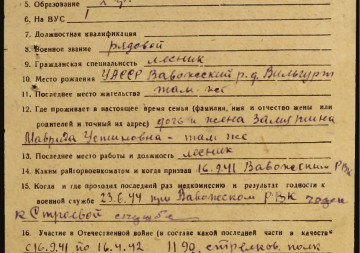 5. Образование
6. На ВУС 1
7. Должностная квалификация
8. Военное звание рядовой
9. Гражданская специальность лесник
10. Место рождения УАССР Вавожский р.д. Вильгурт
11. Последнее место жительства там-же
12. Где проживает в настоящее время семья (фамилия, имя и отчество жены или
родителей и точный их адрес) жена
Устиловна - там же
13. Последнее место работы и должность лесник
14. Каким райгорвоенкоматом и когда призван 16.9.41 Вавожским РВК
15. Когда и где проходил последний раз медкомиссию и результат годности к
военной службе 23.6.44 при Вавожском РВК годен
к строевой службе
16. Участие в Отечественной войне (в составе какой последней части и в качестве
с 16.9.41 по 16.4.42 1190. стрелков. полк